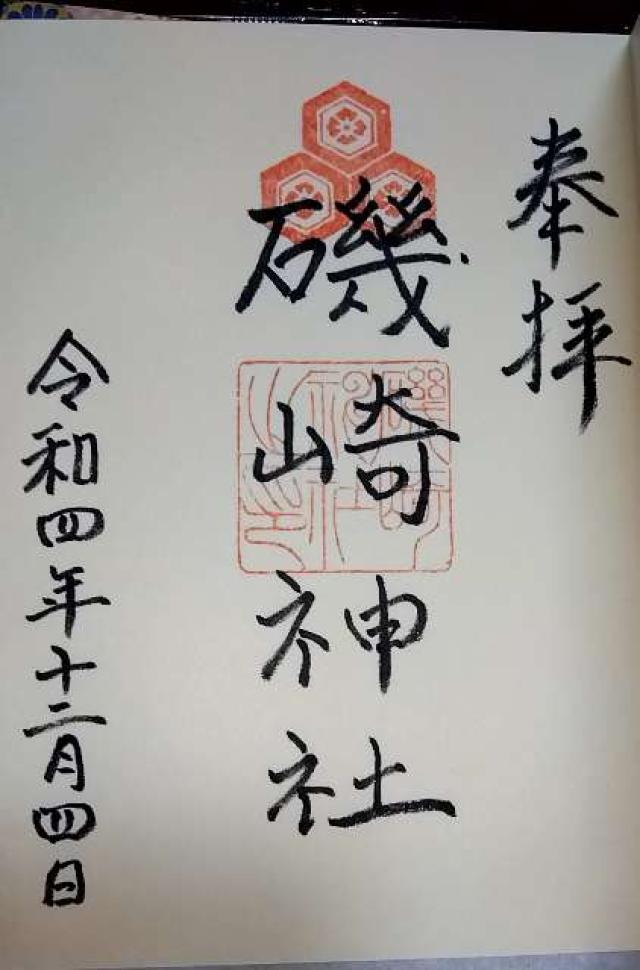 奉拝
磯崎神社
令和四年十二月四日